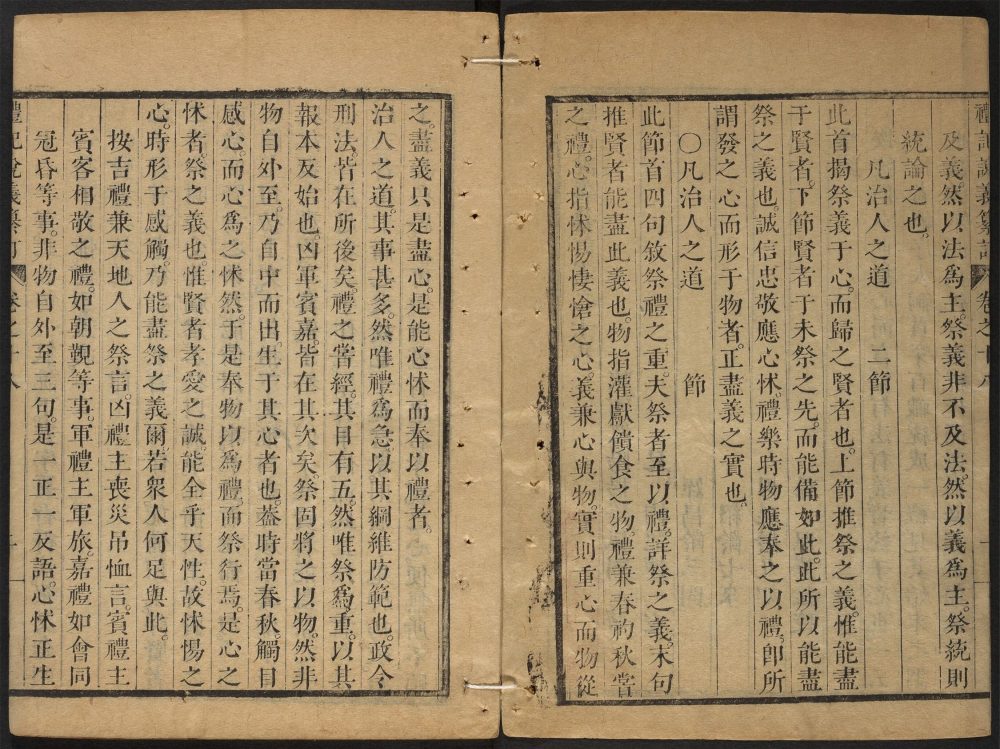 禮記說義纂訂 卷之十八
及義然以法爲主。祭義非不及法。然以義爲主。祭統則
統論之也。
凡治人之道 二節
此首揭祭義于心。而歸之賢者也。上節推祭之義。惟能盡
于賢者。下節賢者于未祭之先。而能備如此。此所以能盡
祭之義也。誠信忠敬應心怵。禮樂時物應奉之以禮。卽所
謂發之心而形于物者。正盡義之實也。
〇凡治人之道 節
此節首四句敘祭禮之重。夫祭者至以禮。詳祭之義。末句
推賢者能盡此義也。物指灌獻饋食之物。禮兼春礿秋嘗
之禮。心指怵惕悽愴之心。義兼心與物。實則重心而物從
之。盡義只是盡心。是能心怵而奉以禮者。
治人之道。其事甚多。然唯禮爲急。以其綱維防範也。政令
刑法。皆在所後矣。禮之嘗經。其目有五。然唯祭爲重。以其
報本反始也。凶軍賓嘉。皆在其次矣。祭固將之以物。然非
物自外至。乃自中而出。生于其心者也。蓋時當春秋。觸目
感心。而心爲之怵然。于是奉物以爲禮。而祭行焉。是心之
怵者。祭之義也。惟賢者孝愛之誠。能全乎天性。故怵惕之
心。時形于感觸。乃能盡祭之義爾。若衆人何足與此。
按吉禮兼天地人之祭言。凶禮主喪災吊恤言。賓禮主
賓客相敬之禮。如朝覲等事。軍禮主軍旅。嘉禮如會同
冠昏等事。非物自外至三句。是一正一反語。心怵正生
禮記說義纂訂 卷之十八